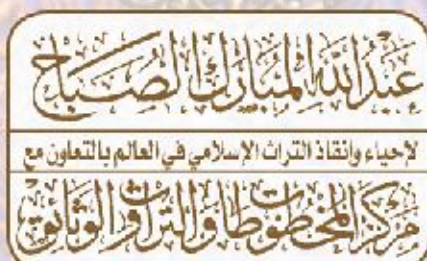 عبد الله المبارك الصباح
لإحياء وانقاذ التراث الإسلامي في العالم بالتعاون مع
مركز المخطوطات والتراث والوثائق